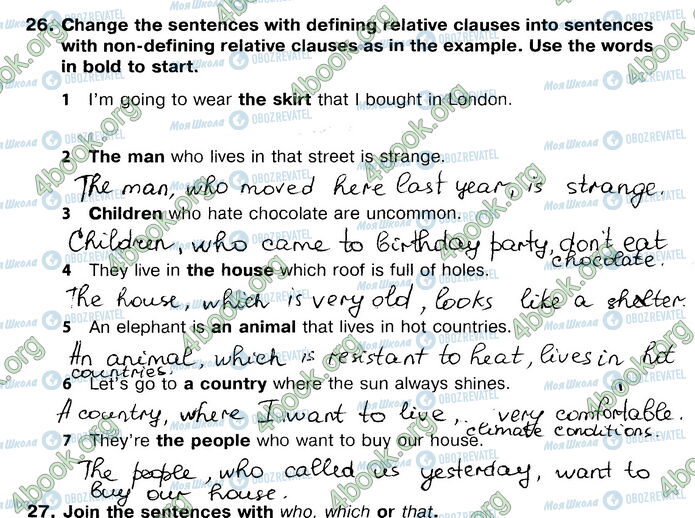 26. Change the sentences with defining relative clauses into sentences
with non-defining relative clauses as in the example. Use the words
in bold to start.
1 I'm going to wear the skirt that I bought in London.
2 The man who lives in that street is strange.
The man, who moved here last year, is strange.
3 Children who hate chocolate are uncommon.
Children, who came to birthday party, don't eat
chocolate.
4 They live in the house which roof is full of holes.
The house, which is very old, looks like a shelter.
5 An elephant is an animal that lives in hot countries.
An animal, which is resistant to heat, lives in hot
countries.
6 Let's go to a country where the sun always shines.
A country, where I want to live, very comfortable.
climate conditions.
7 They're the people who want to buy our house.
The people, who called us yesterday, want to
buy our house.
27. Join the sentences with who, which or that.
4book.org
Моя Школа
OBOZREVATEL